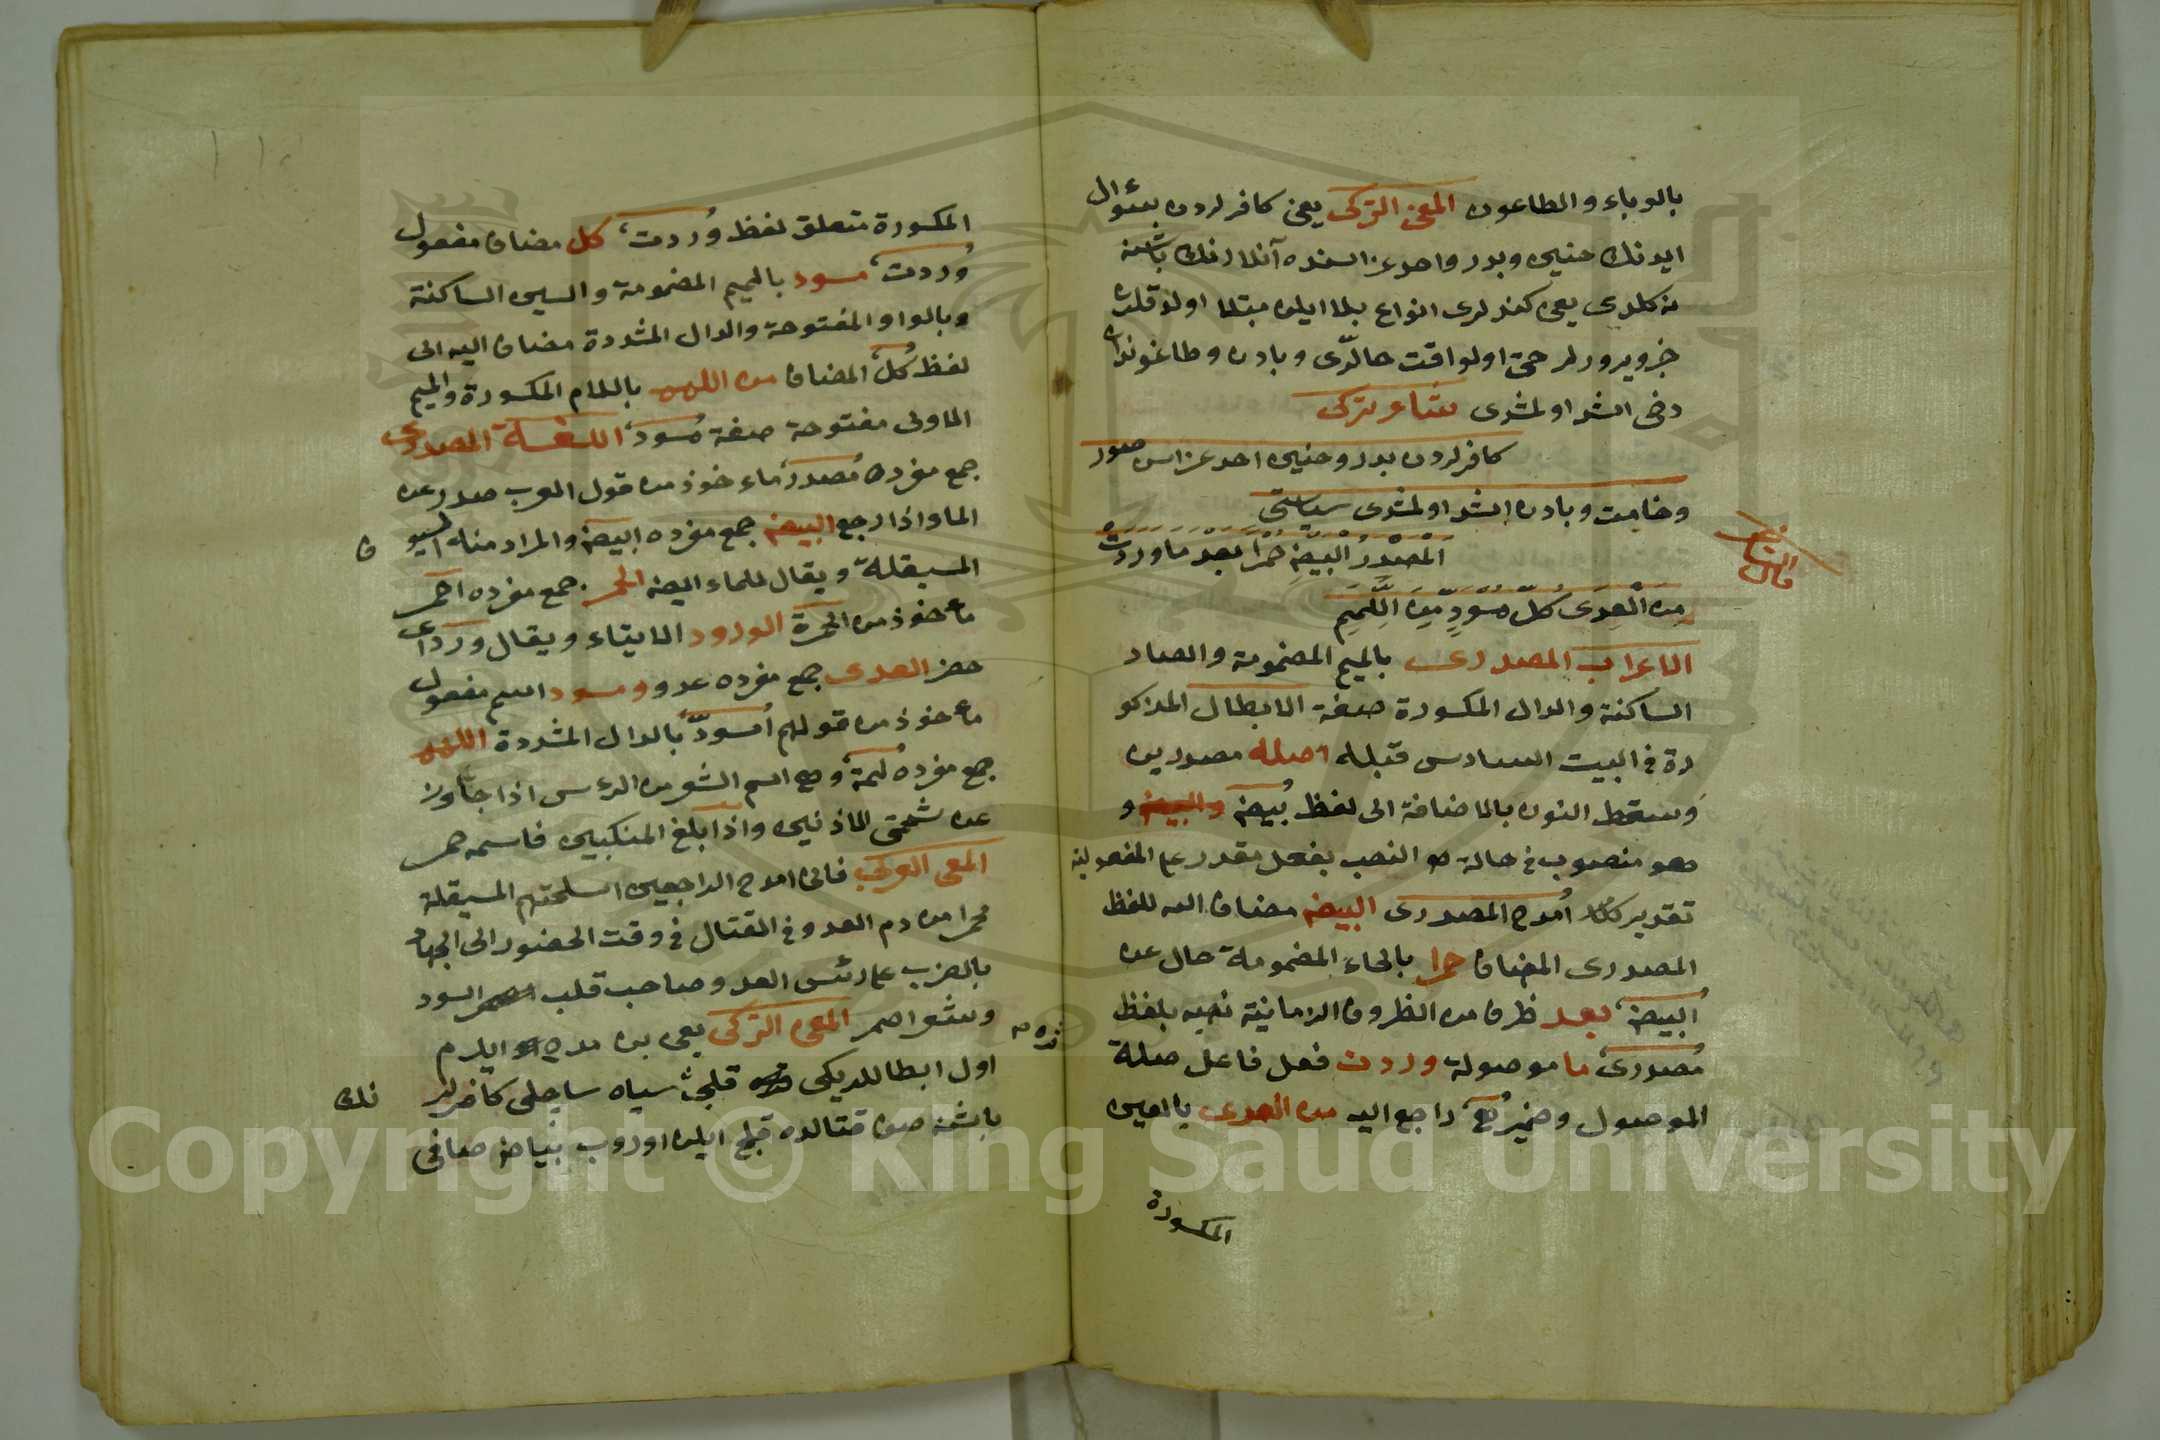 بالوباء والطاعون المعنى التركى يعنى كافرلردن سئوال
ايدنك حنين وبدر واحد غزاسنده آنلارنك باشنه
نه كلدى يعنى كندلرى انواع بلا ايله مبتلا اولدقلرن
خرويرورلر حتى اولو اقت حالدى وبادن وطاغوندان
دخى اشد اولمشدى
كافرلردن بدر وحنين احد غزاسن صور
وخامت وبادن اشد اولمشدى
قال الناظم
المصدر البيض حمرا بعد ما وردت
من العدى كل مسود من اللمم
الاعراب المصدرى بالميم المضمومة والصاد
الساكنة والدال المكسورة صفة الابطال المذكو
رة فى البيت السادس قبله اصله مصدرين
وسقط النون بالاضافة الى لفظ بيض والبيض و
هو منصوب فى حالة النصب بفعل مقدر على المفعولية
تقديره امدح المصدرى البيض مضاف اليه للفظ
المصدرى المضاف حمرا بالحاء المضمومة حال عن
البيض بعد ظرف من الظروف الزمانية نصبه بلفظ
مصدرى ما موصولة وردت فعل فاعل صلة
الموصول وضمير راجع اليه من العدى بالعين
المكسورة
المكسورة متعلق لفظ وردت كل مضاف مفعول
وردت مسود بالميم المضمومة والسين الساكنة
وبالواو المفتوحة والدال المشددة مضاف اليه الى
لفظ كل المضاف من اللمم باللام المكسورة والميم
الاولى مفتوحة صفة مسود اللغة المصدرى
جمع مفرده مصدر ماء خوذ من قول العرب صدر عن
الماء اذا رجع البيض جمع مفرده ابيض والمراد منه السيو
ف
المسيقلة ويقال للماء ابيض الحمر جمع مفرده احمر
ماء خوذ من الحمرة الورود الايتاء ويقال ورد اى
حضر العدى جمع مفرده عدو ومسود اسم مفعول
ماء خوذ من قولهم اسود بالدال المشددة اللمم
جمع مفرده لمة وهى اسم الشعر من الرءس اذا جاوز
عن شحمتى الاذنين واذا بلغ المنكبين فاسمه جمر
المعنى العربى فانى امدح الراجعين اسلحتهم المسيقلة
حمرا من دم العدو فى القتال فى وقت الحضور الى الجهاد
بالضرب على رئس العدو وصاحب قلب اسود
وشعر اصمر المعنى التركى يعنى بن مدح ايدرم
اول ابطاللريكى قلجى سياه ساچلى كافرلر
نك
باشنه صون قتالده قلج ايله اوروب بياض صافى